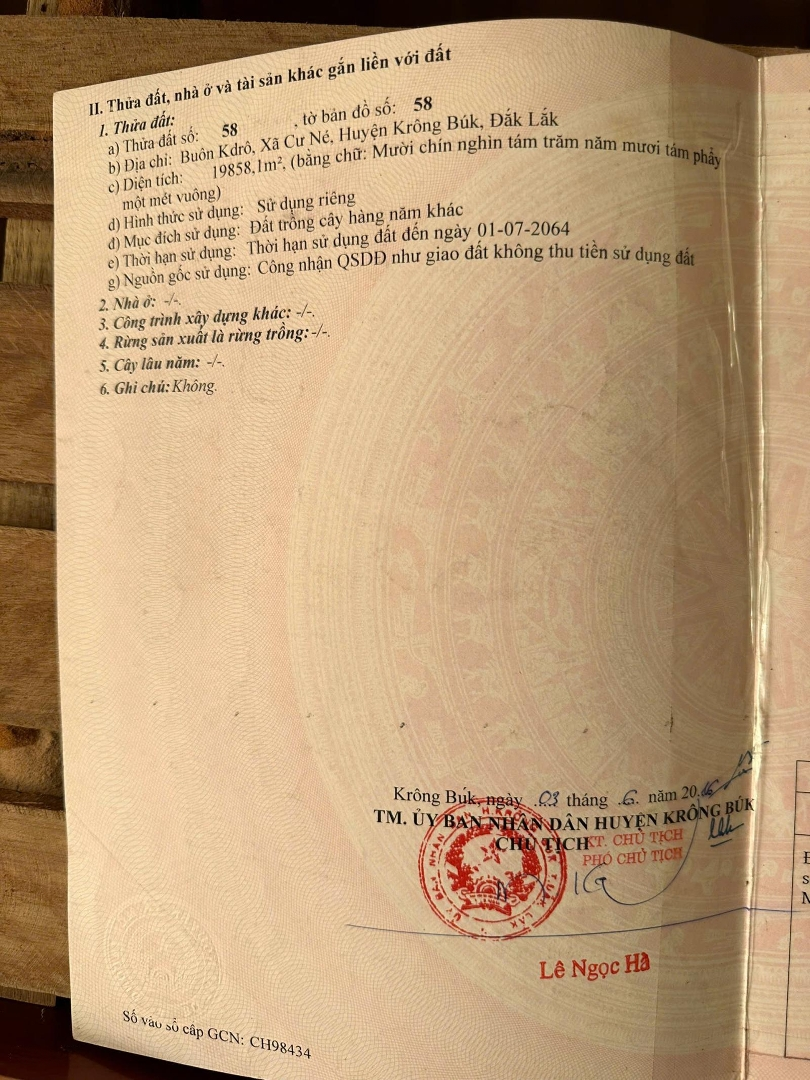 II. Thửa đất, nhà ở và tài sản khác gắn liền với đất
1. Thửa đất:
a) Thửa đất số: 58 , tờ bản đồ số: 58
b) Địa chỉ: Buôn Kdrô, Xã Cư Né, Huyện Krông Búk, Đắk Lắk
c) Diện tích: 19858,1m², (bằng chữ: Mười chín nghìn tám trăm năm mươi tám phẩy
một mét vuông)
d) Hình thức sử dụng: Sử dụng riêng
đ) Mục đích sử dụng: Đất trồng cây hàng năm khác
e) Thời hạn sử dụng: Thời hạn sử dụng đất đến ngày 01-07-2064
g) Nguồn gốc sử dụng: Công nhận QSDĐ như giao đất không thu tiền sử dụng đất
2. Nhà ở: -/-.
3. Công trình xây dựng khác: -/-.
4. Rừng sản xuất là rừng trồng: -/-.
5. Cây lâu năm: -/-.
6. Ghi chú: Không.
Krông Búk, ngày 03 tháng 6 năm 2016
TM. ỦY BAN NHÂN DÂN HUYỆN KRÔNG BÚK
CHỦ TỊCH
KT. CHỦ TỊCH
PHÓ CHỦ TỊCH
Lê Ngọc Hà
Số vào sổ cấp GCN: CH98434